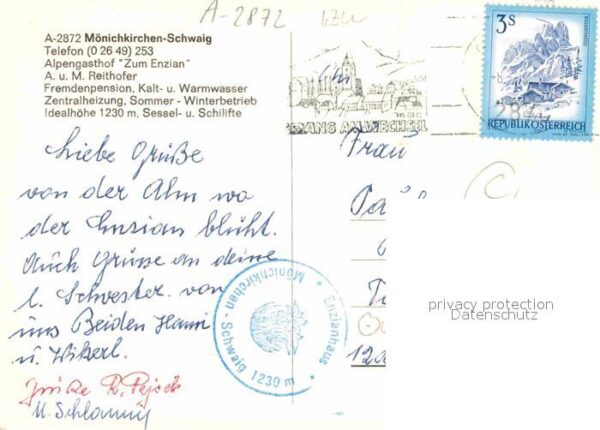 A-2872
A-2872 Mönichkirchen-Schwaig
Telefon (0 26 49) 253
Alpengasthof "Zum Enzian"
A. u. M. Reithofer
Fremdenpension, Kalt- u. Warmwasser
Zentralheizung, Sommer - Winterbetrieb
Idealhöhe 1230 m, Sessel- u. Schilifte
3S
REPUBLIK ÖSTERREICH
AM WECHSEL
Liebe Grüße
von der Alm wo
der Enzian blüht.
Auch Grüsse an deine
l. Schwester von
uns Beiden Hansi
u. Wikerl.
Frau
Mönichkirchen - Schwaig 1230 m • Enzianhaus •
privacy protection
Datenschutz